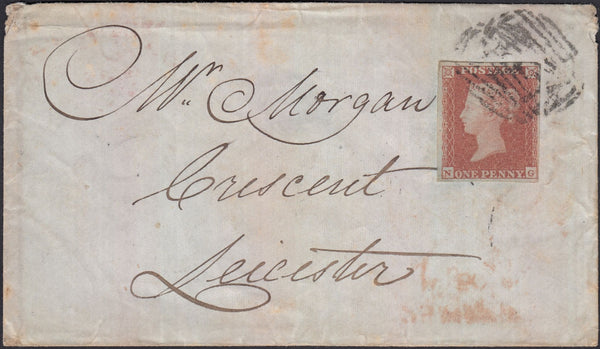 Mr Morgan
Crescent
Leicester
POSTAGE
N ONE PENNY G